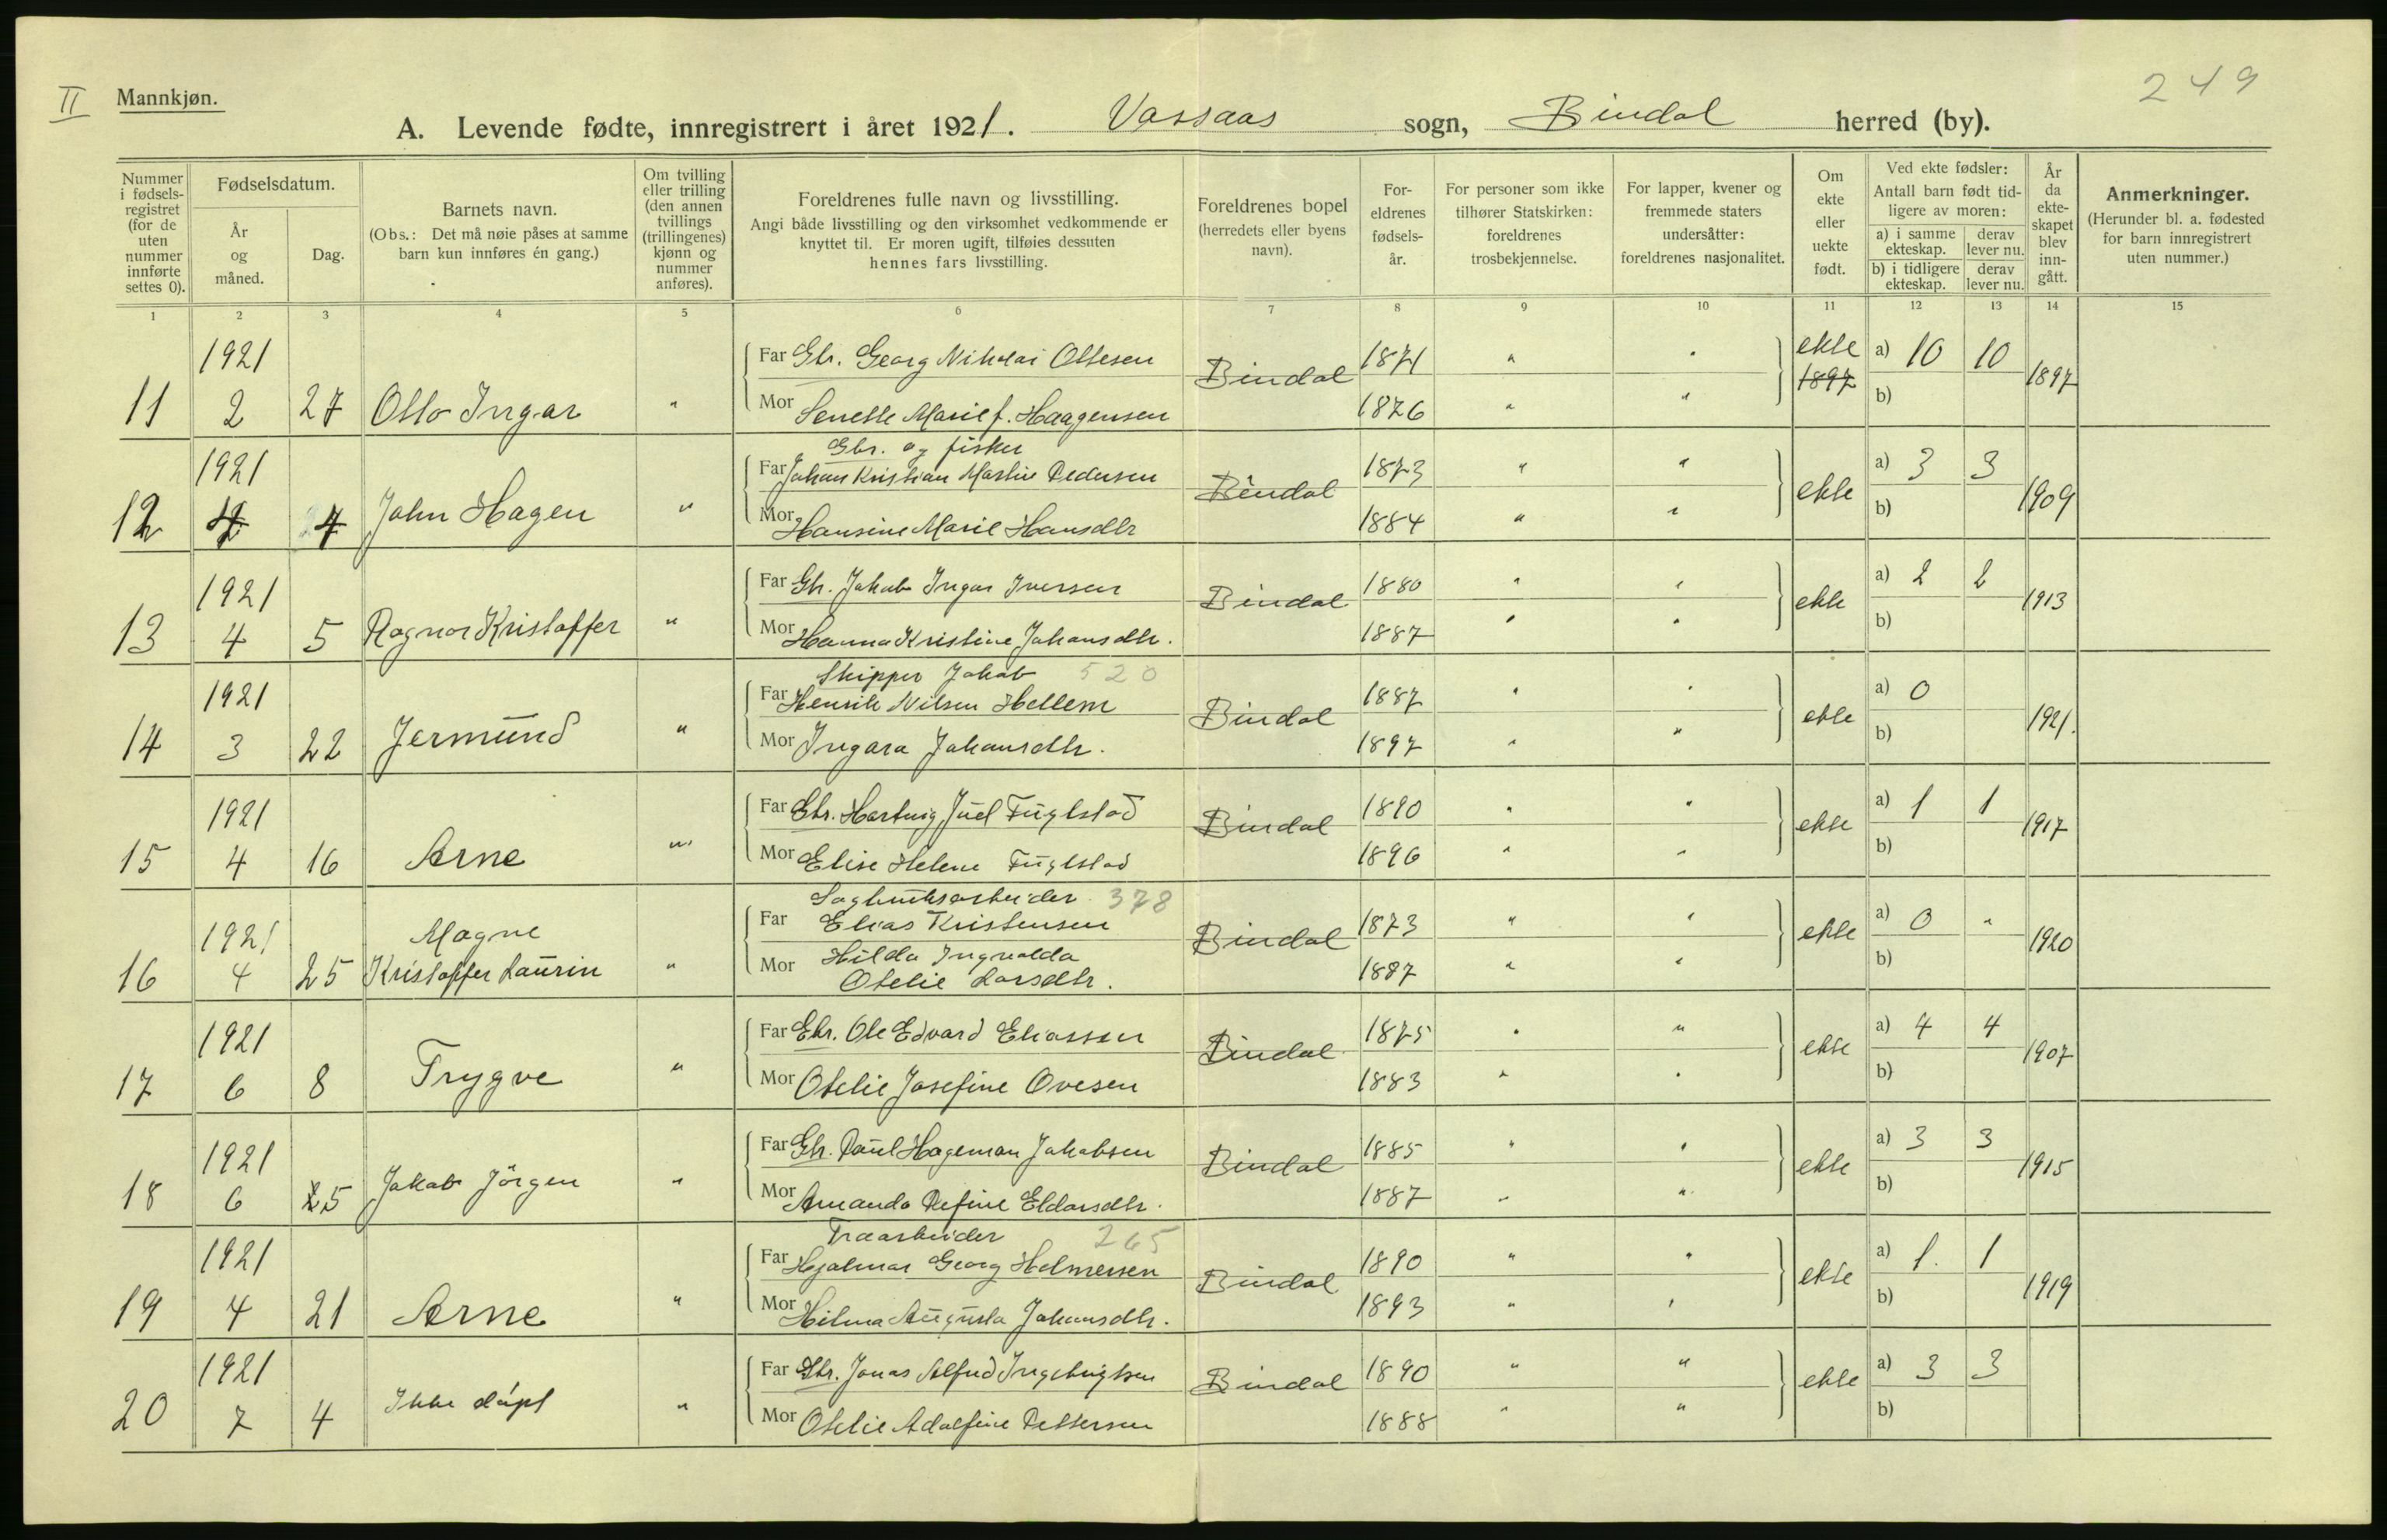 II Mannkjøn. 249
A. Levende fødte, innregistrert i året 1921. Vassaas sogn, Bindal herred (by).
Nummer i fødselsregistret (for de uten nummer innførte settes 0).
Fødselsdatum.
År og måned.
Dag.
Barnets navn.
(Obs.: Det må nøie påses at samme barn kun innføres én gang.)
Om tvilling eller trilling (den annen tvillings (trillingenes) kjønn og nummer anføres).
Foreldrenes fulle navn og livsstilling.
Angi både livsstilling og den virksomhet vedkommende er knyttet til. Er moren ugift, tilføies dessuten hennes fars livsstilling.
Foreldrenes bopel (herredets eller byens navn).
Foreldrenes fødselsår.
For personer som ikke tilhører Statskirken: foreldrenes trosbekjennelse.
For lapper, kvener og fremmede staters undersåtter: foreldrenes nasjonalitet.
Om ekte eller uekte født.
Ved ekte fødsler: Antall barn født tidligere av moren:
a) i samme ekteskap. derav lever nu.
b) i tidligere ekteskap. derav lever nu.
År da ekteskapet blev inngått.
Anmerkninger.
(Herunder bl. a. fødested for barn innregistrert uten nummer.)
1 2 3 4 5 6 7 8 9 10 11 12 13 14 15
1921 Far Gbr. Georg Nikolai Ottesen Bindal 1871 " " ekte a) 10 10 1897
11 2 27 Otto Ingar " Mor Senette Marie f. Haagensen 1876 " " 1897 b)
Gbr. og fisker
1921 Far Johan Kristian Martin Pedersen Bindal 1873 " " ekte a) 3 3 1909
12 4 John Hagen " Mor Hansine Marie Hansdtr 1884 " " b)
1921 Far Gbr. Jakob Ingar Iversen Bindal 1880 " " ekte a) 2 2 1913
13 4 5 Ragnar Kristoffer " Mor Hanna Kristine Johansdtr. 1887 " " b)
Skipper Jakob 520
1921 Far Henrik Nilsen Hellem Bindal 1887 " " ekte a) 0 1921.
14 3 22 Jermund " Mor Ingara Johansdtr. 1897 " " b)
1921 Far Gbr. Hartvig Juel Fuglstad Bindal 1890 " " ekte a) 1 1 1917
15 4 16 Arne " Mor Elise Helene Fuglstad 1896 " " b)
Sagbruksarbeider 378
1921 Magne Far Elias Kristensen Bindal 1873 " " ekte a) 0 " 1920
16 4 25 Kristoffer Laurin " Mor Hilda Ingvalda Otelie Larsdtr. 1887 " " b)
1921 Far Gbr. Ole Edvard Eliassen Bindal 1875 " " ekte a) 4 4 1907
17 6 8 Trygve " Mor Otelie Josefine Ovesen 1883 " " b)
1921 Far Gbr. Paul Hageman Jakobsen Bindal 1885 " " ekte a) 3 3 1915
18 6 5 Jakob Jörgen " Mor Amanda Refine Eldarsdtr. 1887 " " b)
Traarbeider 265
1921 Far Hjalmar Georg Holmersen Bindal 1890 " " ekte a) 1. 1 1919
19 4 21 Arne " Mor Hilma Augusta Johansdtr. 1893 " " b)
1921 Far Gbr. Jonas Alfred Ingebrigtsen Bindal 1890 " " ekte a) 3 3
20 7 4 Ikke döpt " Mor Otelie Adolfine Pettersen 1888 " " b)